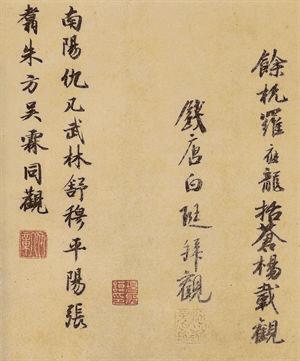 餘杭羅志龍括蒼楊載觀
錢唐白珽拜觀
南陽仇几武林舒穆平陽張
翥朱方吳霖同觀